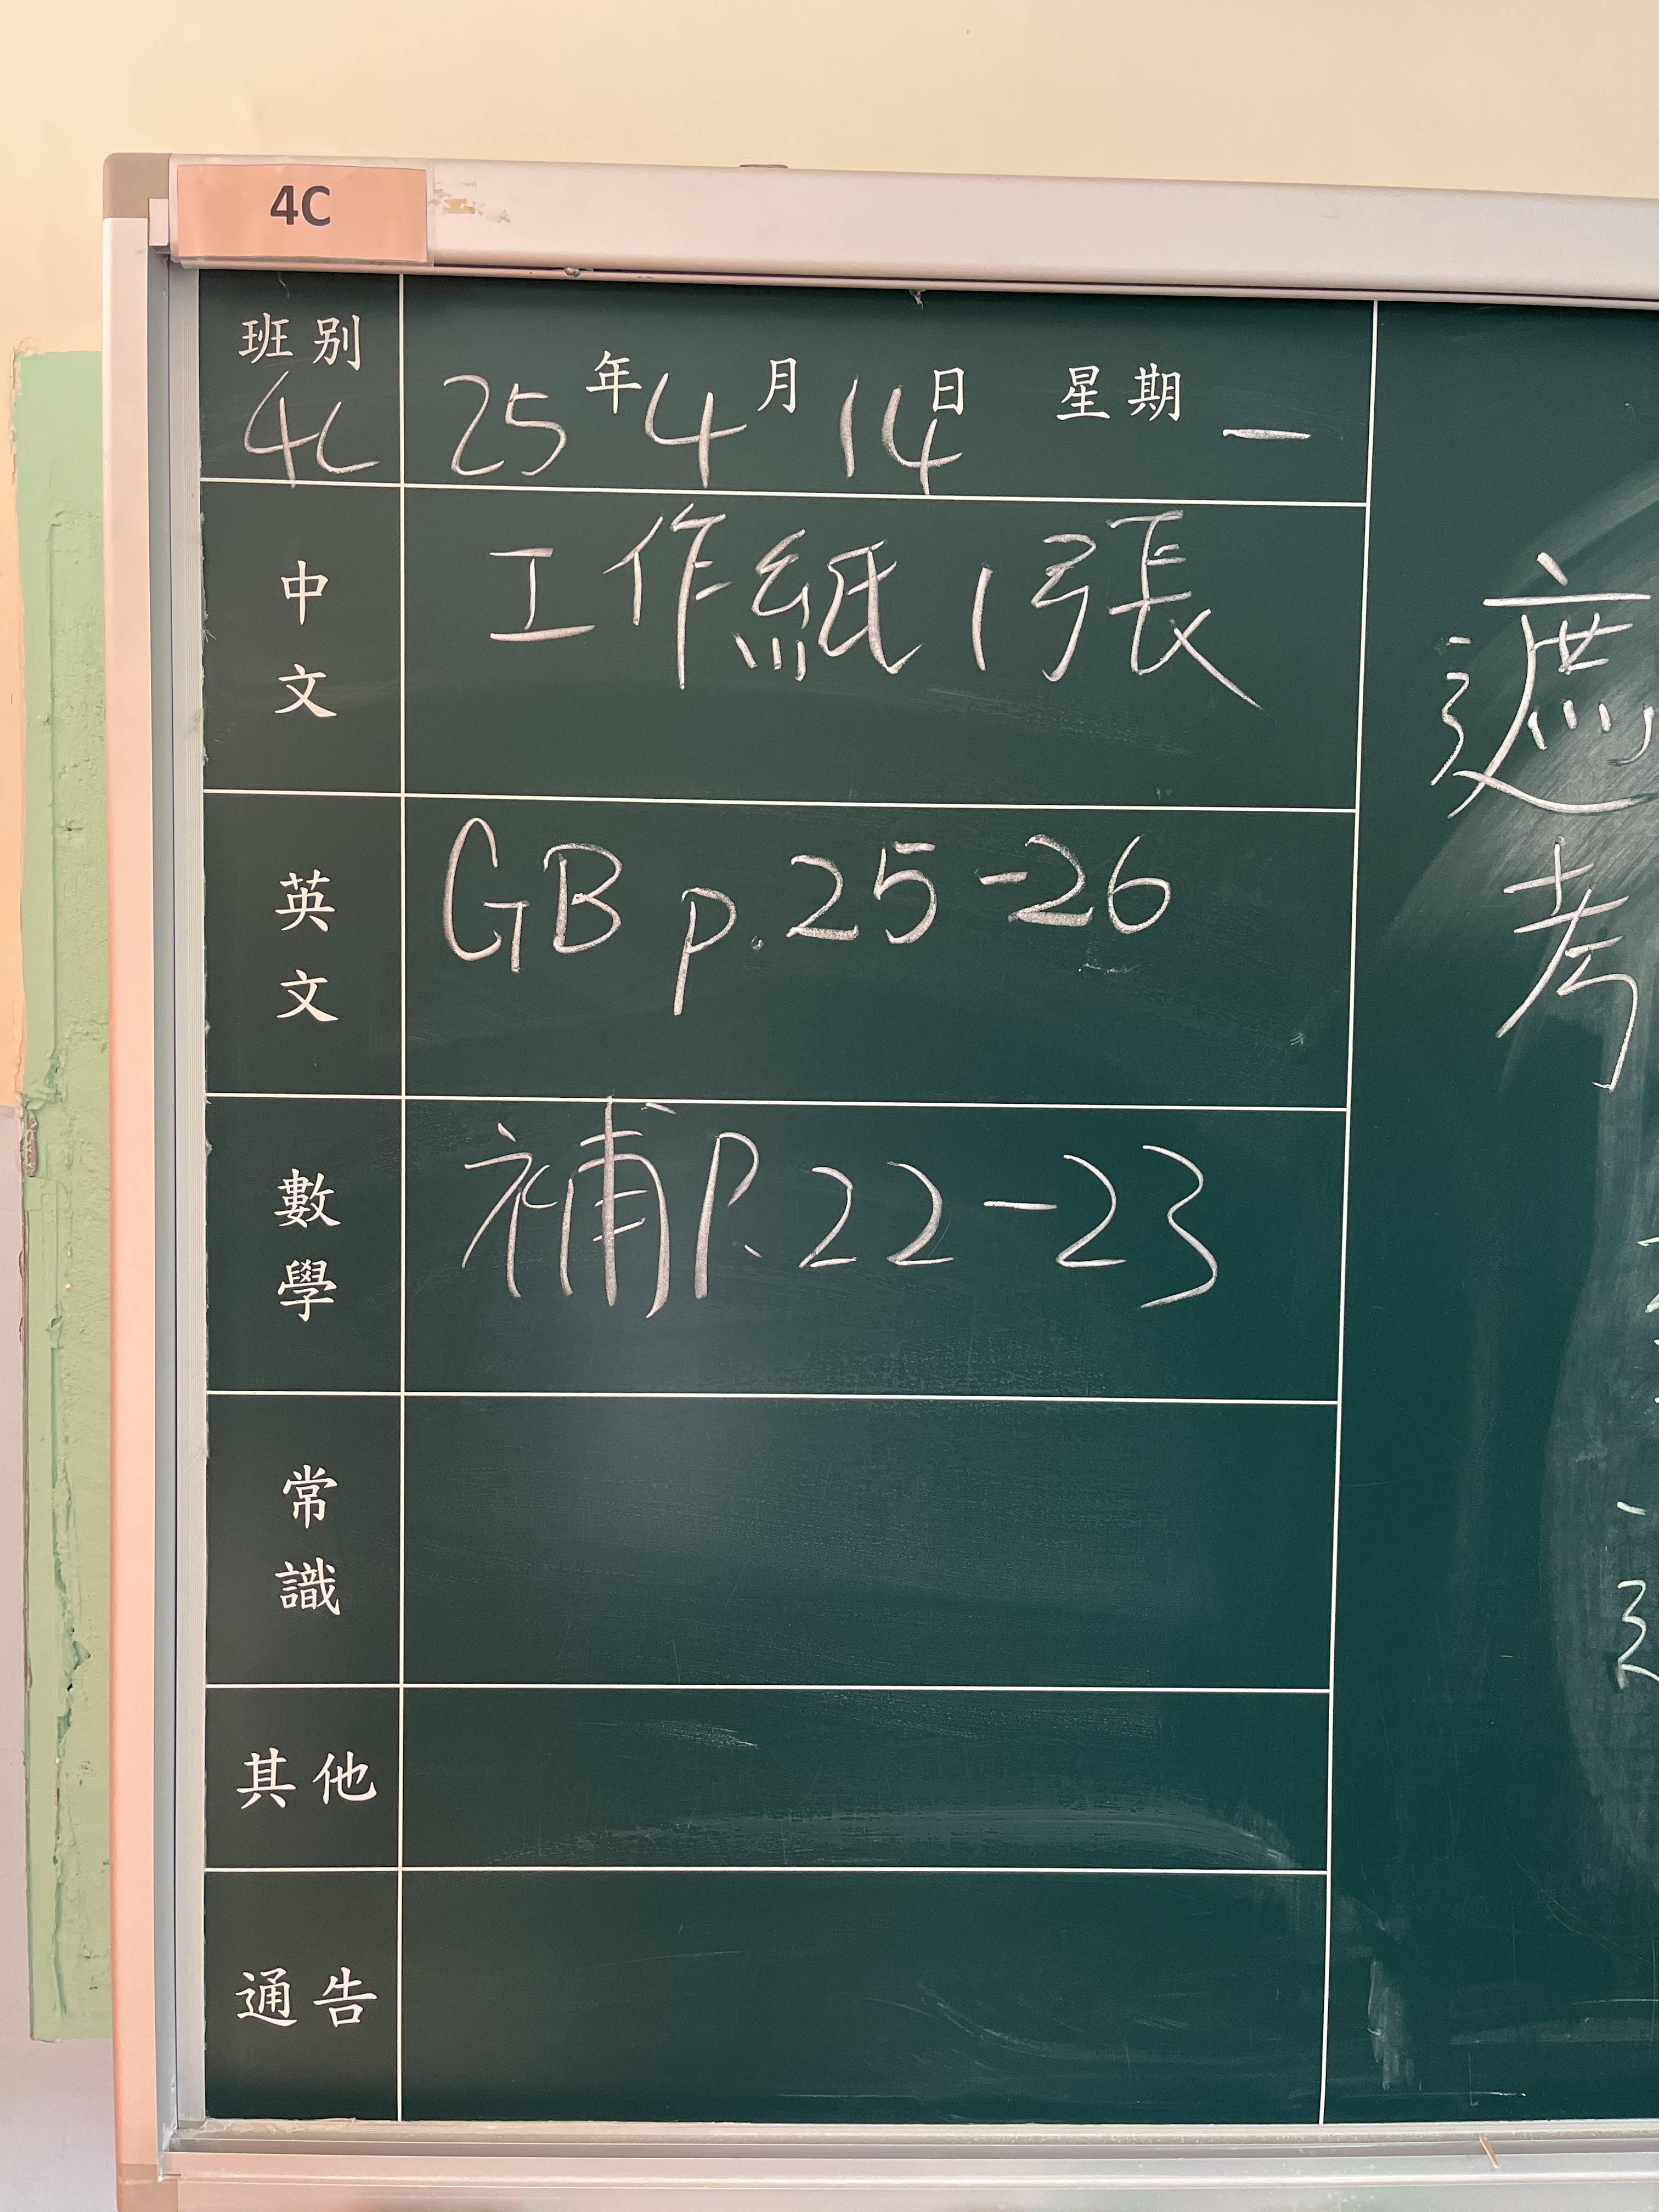 4C
班別
4C
25年4月14日 星期一
中文
工作紙1張
英文
GB p.25-26
數學
補P.22-23
常識
其他
通告
遮
考